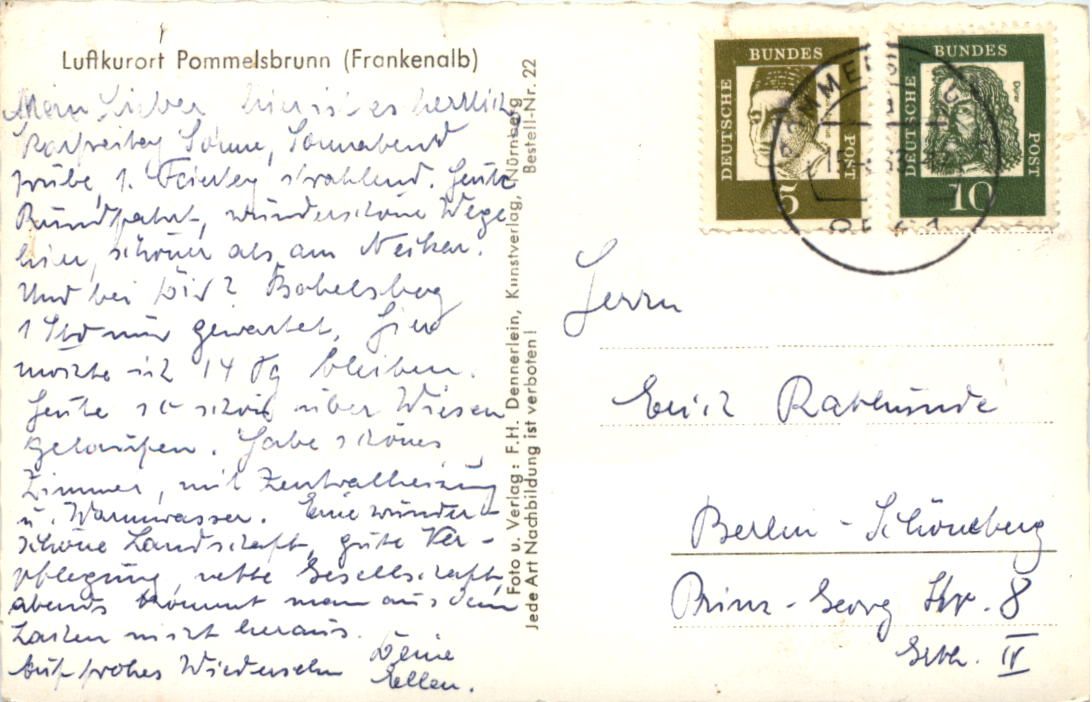 Luftkurort Pommelsbrunn (Frankenalb)
Mein Lieber, hier ist es herrlich
Karfreitag Sonne, Sonnabend
trübe, 1. Feiertag strahlend. Heute
Rundfahrt, wunderschöne Wege
hier, schöner als am Neckar.
Und bei Dir? Babelsbg
1 Std nur gewartet. Hier
möchte ich 14 Tg bleiben.
Heute schon über Wiesen
gelaufen. Habe schönes
Zimmer, mit Zentralheizung
u. Warmwasser. Eine wunder-
schöne Landschaft, gute Ver-
pflegung, nette Gesellschaft,
abends kommt man aus dem
Lachen nicht heraus.
Auf frohes Wiedersehn Deine
Ellen.
Foto u. Verlag: F.H. Dennerlein, Kunstverlag, Nürnberg
Bestell-Nr. 22
Jede Art Nachbildung ist verboten!
DEUTSCHE BUNDES POST
5
DEUTSCHE BUNDES POST
Dürer
10
Herrn
Erich Rathunde
Berlin-Schöneberg
Prinz-Georg Str. 8
Grth. IV